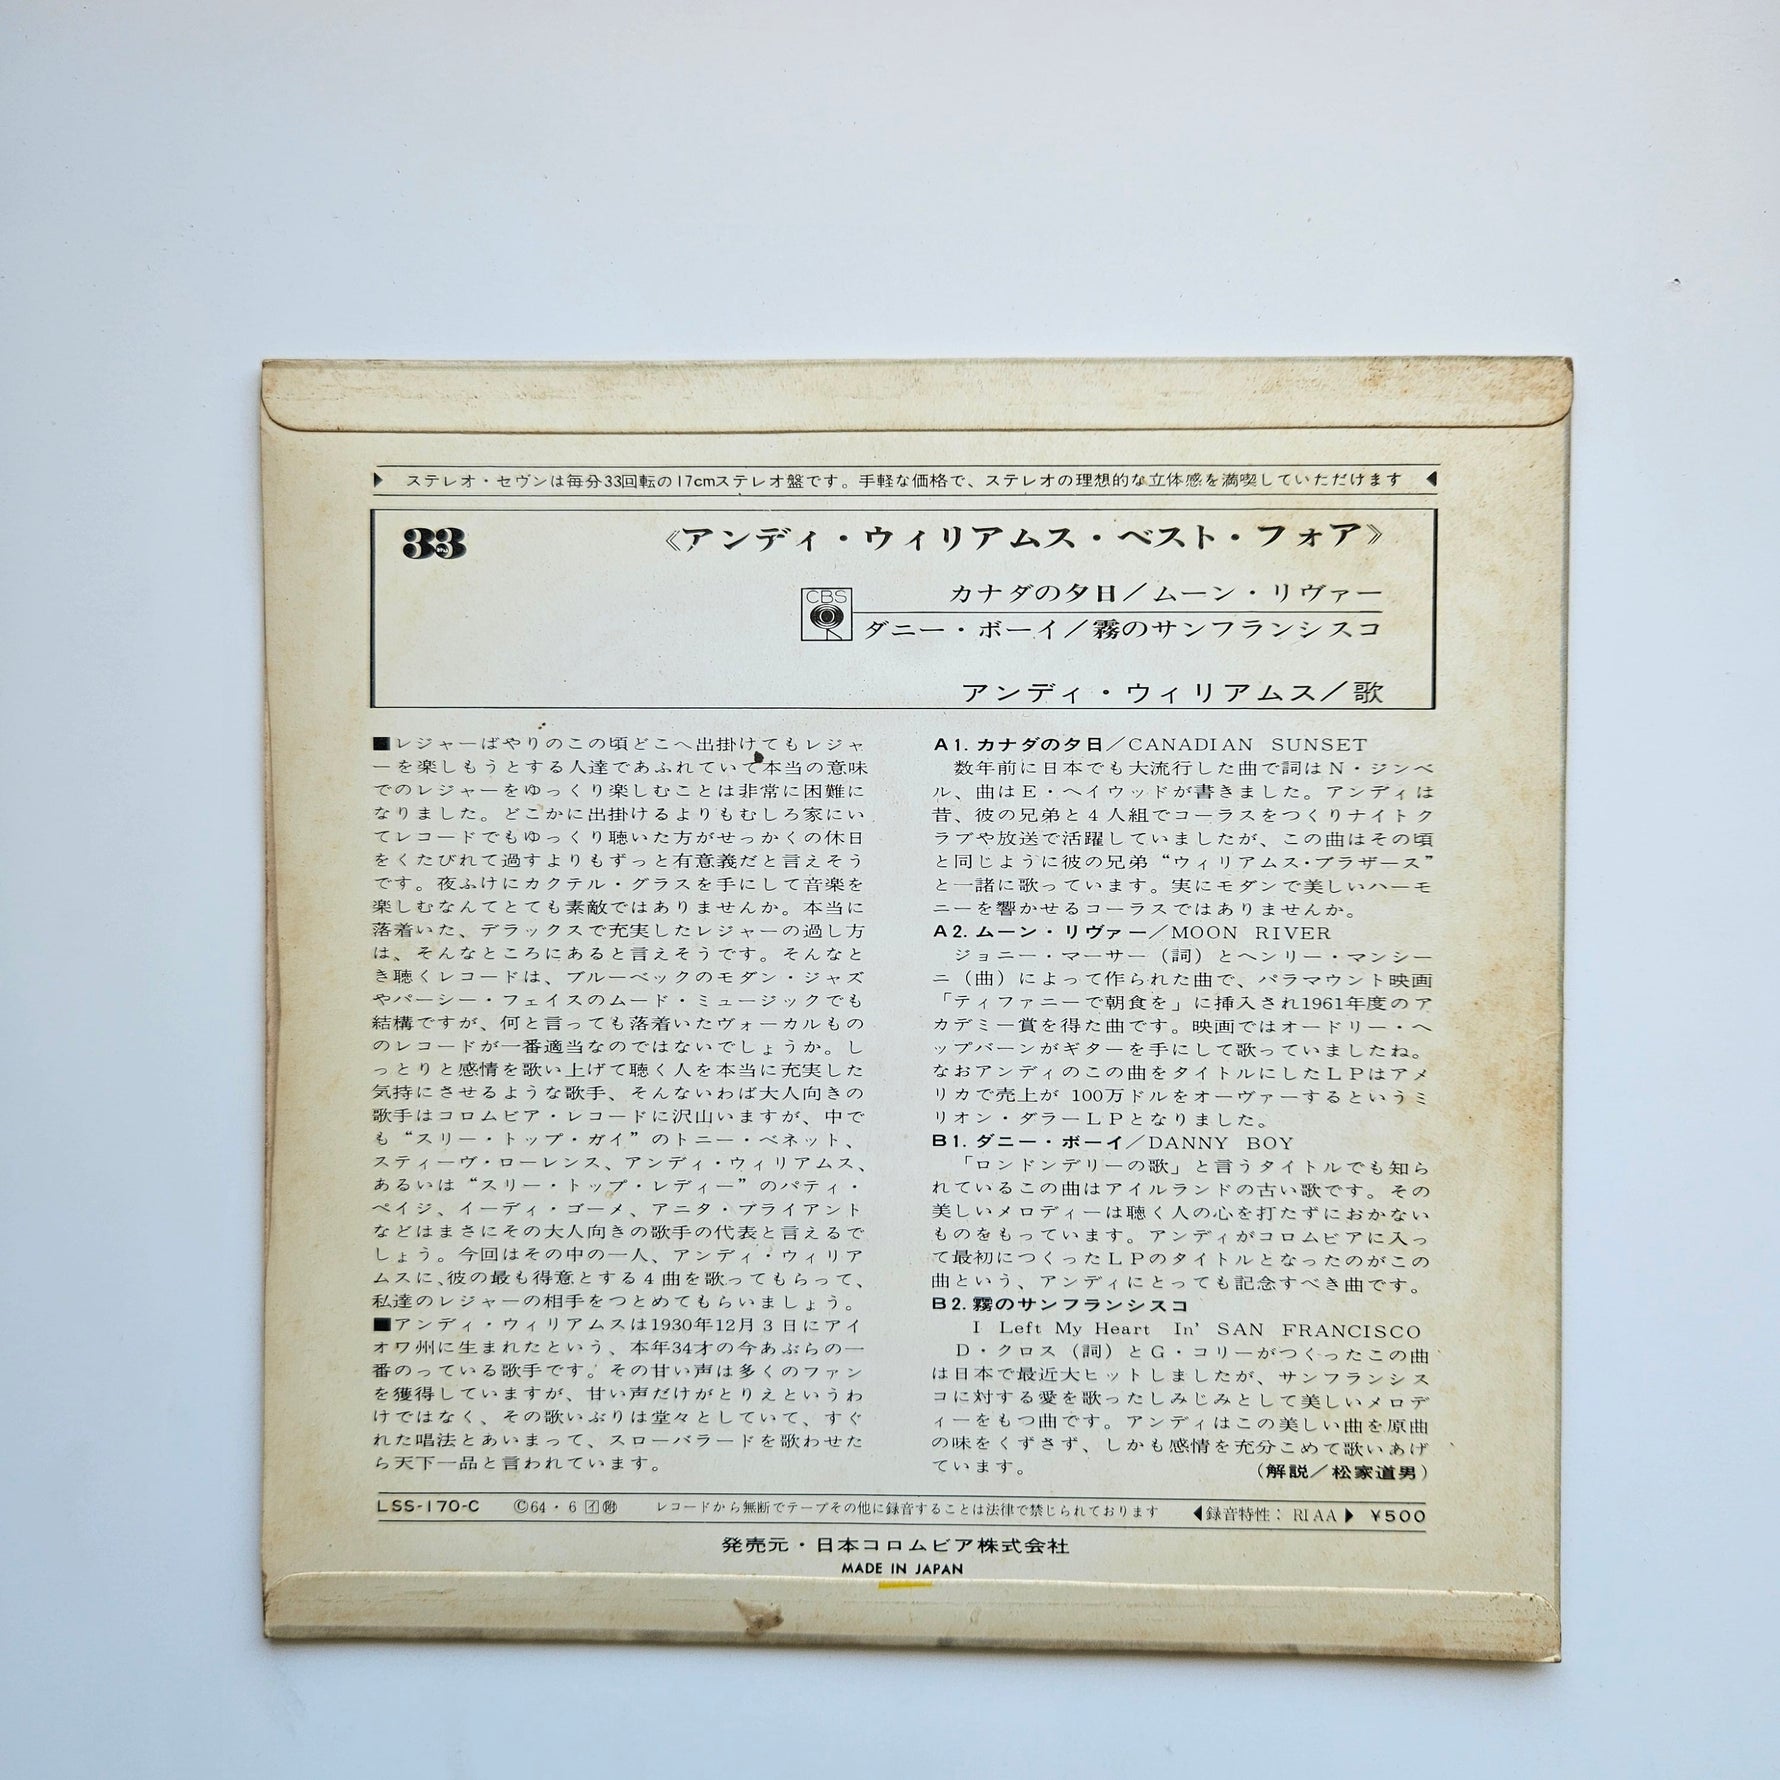 ステレオ・セヴンは毎分33回転の17cmステレオ盤です。手軽な価格で、ステレオの理想的な立体感を満喫していただけます
33
《アンディ・ウィリアムス・ベスト・フォア》
CBS
カナダの夕日／ムーン・リヴァー
ダニー・ボーイ／霧のサンフランシスコ
アンディ・ウィリアムス／歌
■レジャーばやりのこの頃どこへ出掛けてもレジャ
ーを楽しもうとする人達であふれていて本当の意味
でのレジャーをゆっくり楽しむことは非常に困難に
なりました。どこかに出掛けるよりもむしろ家にい
てレコードでもゆっくり聴いた方がせっかくの休日
をくたびれて過すよりもずっと有意義だと言えそう
です。夜ふけにカクテル・グラスを手にして音楽を
楽しむなんてとても素敵ではありませんか。本当に
落着いた、デラックスで充実したレジャーの過し方
は、そんなところにあると言えそうです。そんなと
き聴くレコードは、ブルーベックのモダン・ジャズ
やパーシー・フェイスのムード・ミュージックでも
結構ですが、何と言っても落着いたヴォーカルもの
のレコードが一番適当なのではないでしょうか。し
っとりと感情を歌い上げて聴く人を本当に充実した
気持にさせるような歌手、そんないわば大人向きの
歌手はコロムビア・レコードに沢山いますが、中で
も“スリー・トップ・ガイ”のトニー・ベネット、
スティーヴ・ローレンス、アンディ・ウィリアムス、
あるいは“スリー・トップ・レディー”のパティ・
ペイジ、イーディ・ゴーメ、アニタ・ブライアント
などはまさにその大人向きの歌手の代表と言えるで
しょう。今回はその中の一人、アンディ・ウィリア
ムスに、彼の最も得意とする4曲を歌ってもらって、
私達のレジャーの相手をつとめてもらいましょう。
■アンディ・ウィリアムスは1930年12月3日にアイ
オワ州に生まれたという、本年34才の今あぶらの一
番のっている歌手です。その甘い声は多くのファン
を獲得していますが、甘い声だけがとりえというわ
けではなく、その歌いぶりは堂々としていて、すぐ
れた唱法とあいまって、スローバラードを歌わせた
ら天下一品と言われています。
A1. カナダの夕日／CANADIAN SUNSET
数年前に日本でも大流行した曲で詞はN・ジンベ
ル、曲はE・ヘイウッドが書きました。アンディは
昔、彼の兄弟と4人組でコーラスをつくりナイトク
ラブや放送で活躍していましたが、この曲はその頃
と同じように彼の兄弟“ウィリアムス・ブラザース”
と一諸に歌っています。実にモダンで美しいハーモ
ニーを響かせるコーラスではありませんか。
A2. ムーン・リヴァー／MOON RIVER
ジョニー・マーサー（詞）とヘンリー・マンシー
ニ（曲）によって作られた曲で、パラマウント映画
「ティファニーで朝食を」に挿入され1961年度のア
カデミー賞を得た曲です。映画ではオードリー・ヘ
ップバーンがギターを手にして歌っていましたね。
なおアンディのこの曲をタイトルにしたLPはアメ
リカで売上が 100万ドルをオーヴァーするというミ
リオン・ダラーLPとなりました。
B1. ダニー・ボーイ／DANNY BOY
「ロンドンデリーの歌」と言うタイトルでも知ら
れているこの曲はアイルランドの古い歌です。その
美しいメロディーは聴く人の心を打たずにおかない
ものをもっています。アンディがコロムビアに入っ
て最初につくったLPのタイトルとなったのがこの
曲という、アンディにとっても記念すべき曲です。
B2. 霧のサンフランシスコ
I Left My Heart In' SAN FRANCISCO
D・クロス（詞）とG・コリーがつくったこの曲
は日本で最近大ヒットしましたが、サンフランシス
コに対する愛を歌ったしみじみとして美しいメロデ
ィーをもつ曲です。アンディはこの美しい曲を原曲
の味をくずさず、しかも感情を充分こめて歌いあげ
ています。 （解説／松家道男）
LSS-170-C ©64・6 イ 附 レコードから無断でテープその他に録音することは法律で禁じられております ◀録音特性：RIAA▶ ¥500
発売元・日本コロムビア株式会社
MADE IN JAPAN